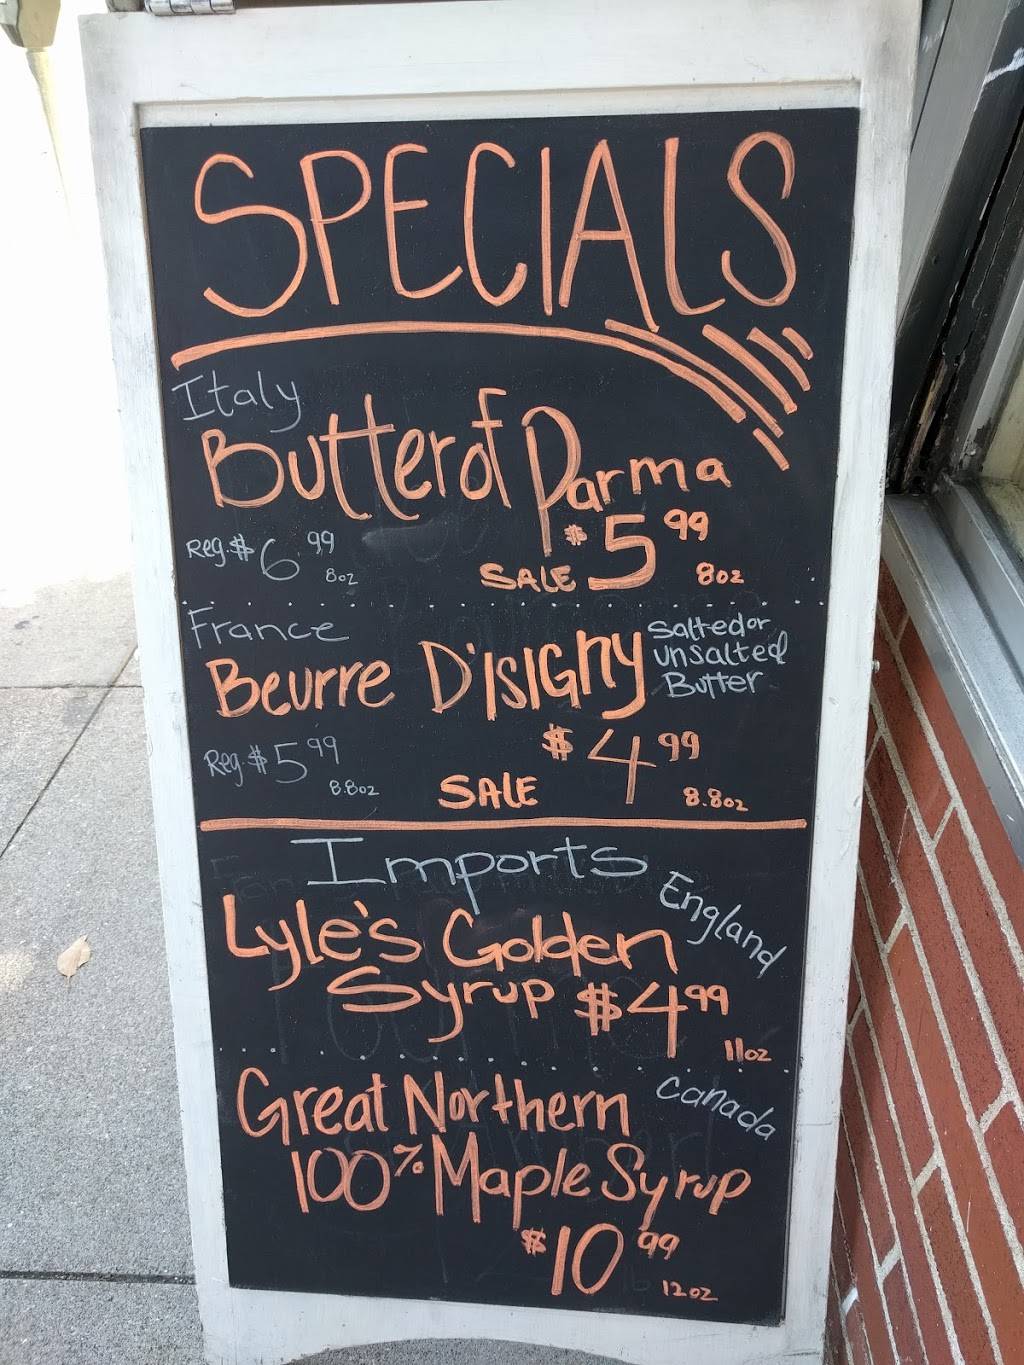 SPECIALS
Italy
Butter of Parma
Reg. $6.99 8oz
SALE $5.99 8oz
France
Beurre D'ISIGNY
Salted or
unsalted
Butter
Reg. $5.99 8.8oz
SALE $4.99 8.8oz
Imports
England
Lyle's Golden
Syrup $4.99
11oz
Canada
Great Northern
100% Maple Syrup
$10.99
12oz